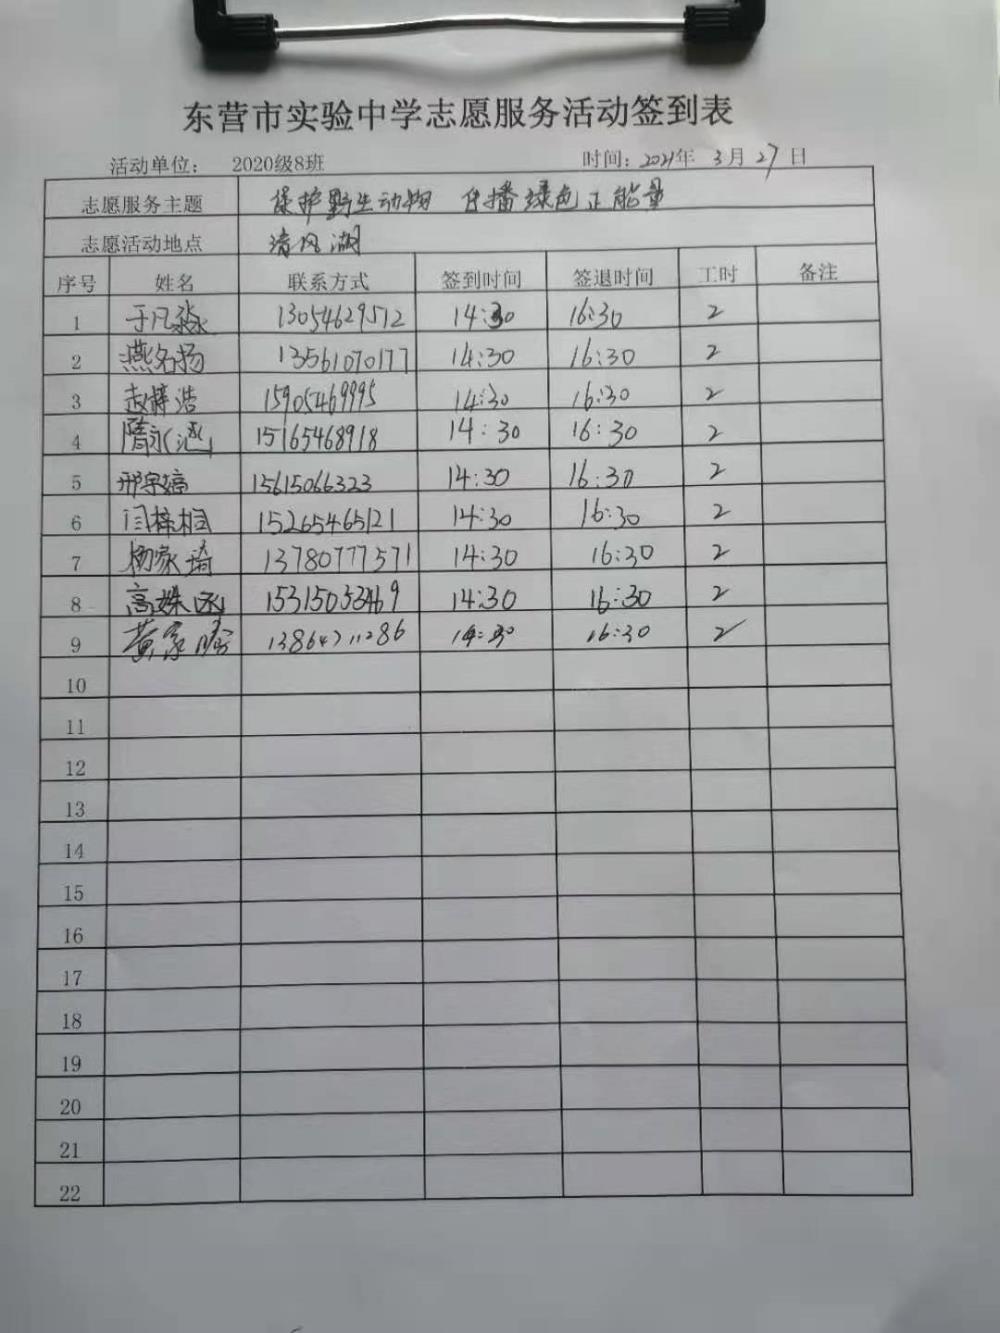 东营市实验中学志愿服务活动签到表
活动单位： 2020级8班 时间：2021年 3月27日
志愿服务主题 保护野生动物 传播绿色正能量
志愿活动地点 清风湖
序号 姓名 联系方式 签到时间 签退时间 工时 备注
1 于凡淼 13054629512 14:30 16:30 2
2 燕名扬 13561070177 14:30 16:30 2
3 赵梓浩 15905469995 14:30 16:30 2
4 隋永涵 15165468918 14:30 16:30 2
5 邢宇婷 15615066323 14:30 16:30 2
6 闫梓桐 15265465121 14:30 16:30 2
7 杨家琦 13780777571 14:30 16:30 2
8 高姝函 15315053469 14:30 16:30 2
9 黄家 14:30 16:30 2
10
11
12
13
14
15
16
17
18
19
20
21
22